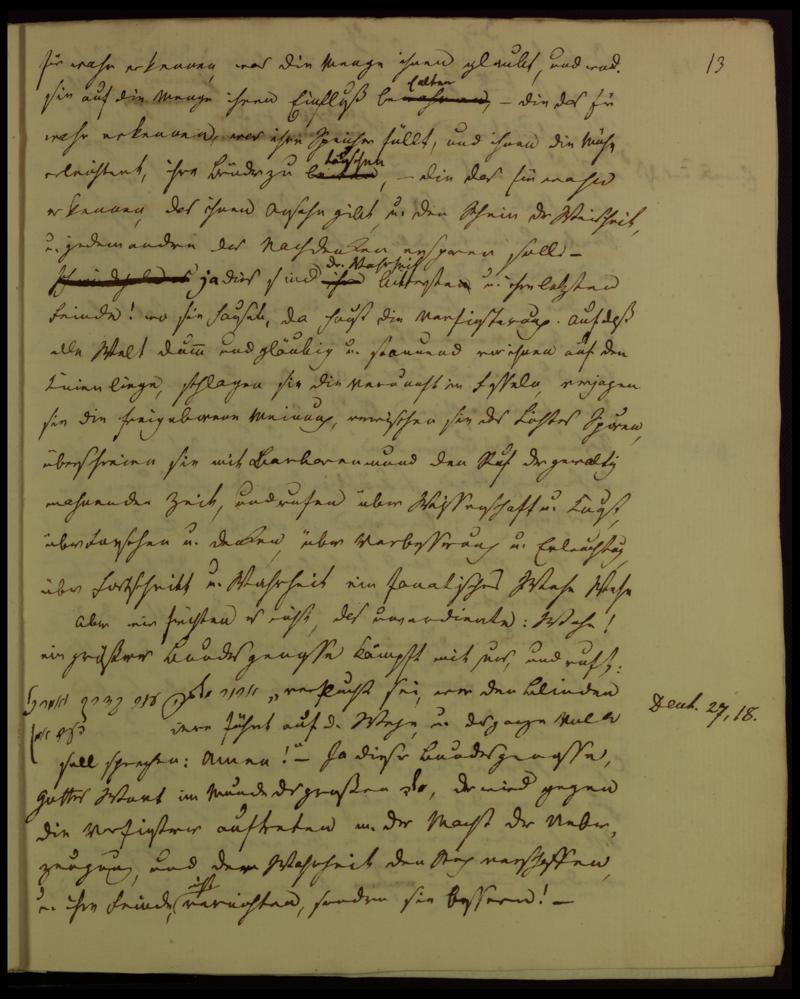 13
für wahr erkennen, was die Menge ihnen glaubt, und was
sie auf die Menge ihren Einfluß behalten, – die das für
wahr erkennen, was ihre Speicher füllt, und ihnen die Mühe
erleichtert, ihre Brüder zu täuschen, – die das für wahr
erkennen, das ihnen Ansehn gibt, u. den Schein der Weisheit,
u. jedem andern das Nachdenken ersparen soll –
ja dies sind der Wahrheit bittersten u. ihre letzten
Feinde! wo sie hausen, da haust die Verfinsterung. Auf daß
alle Welt dumm und gläubig u. staunend vor ihnen auf den
Knien liege, schlagen sie die Vernunft in Fesseln, verjagen
sie die freigeborene Meinung, verwischen sie des Lichtes Spuren,
überschreien sie mit Barbarenmund den Ruf der gewaltig
mahnenden Zeit, und rufen über Wissenschaft u. Kunst,
über Forschen u. Denken, über Verbesserung u. Erleuchtung,
über Fortschritt u. Wahrheit ein fanatisches Wehe Wehe
Aber wir fürchten es nicht, das unverdiente: Wehe!
ein größrer Bundesgenosse kämpft mit uns, und ruft:
„verflucht sei, wer den Blinden
irre führt auf d. Wege, u. das ganze Volk
Deut. 27, 18.
soll sprechen: Amen!“ – Ja dieser Bundesgenosse,
Gottes Wort im Munde des großen, der wird gegen
die Verfinstrer auftreten m. der Macht der Ueber-
zeugung, und der Wahrheit den Sieg verschaffen,
u. ihre Feinde nicht vernichten, sondern sie bessern! –